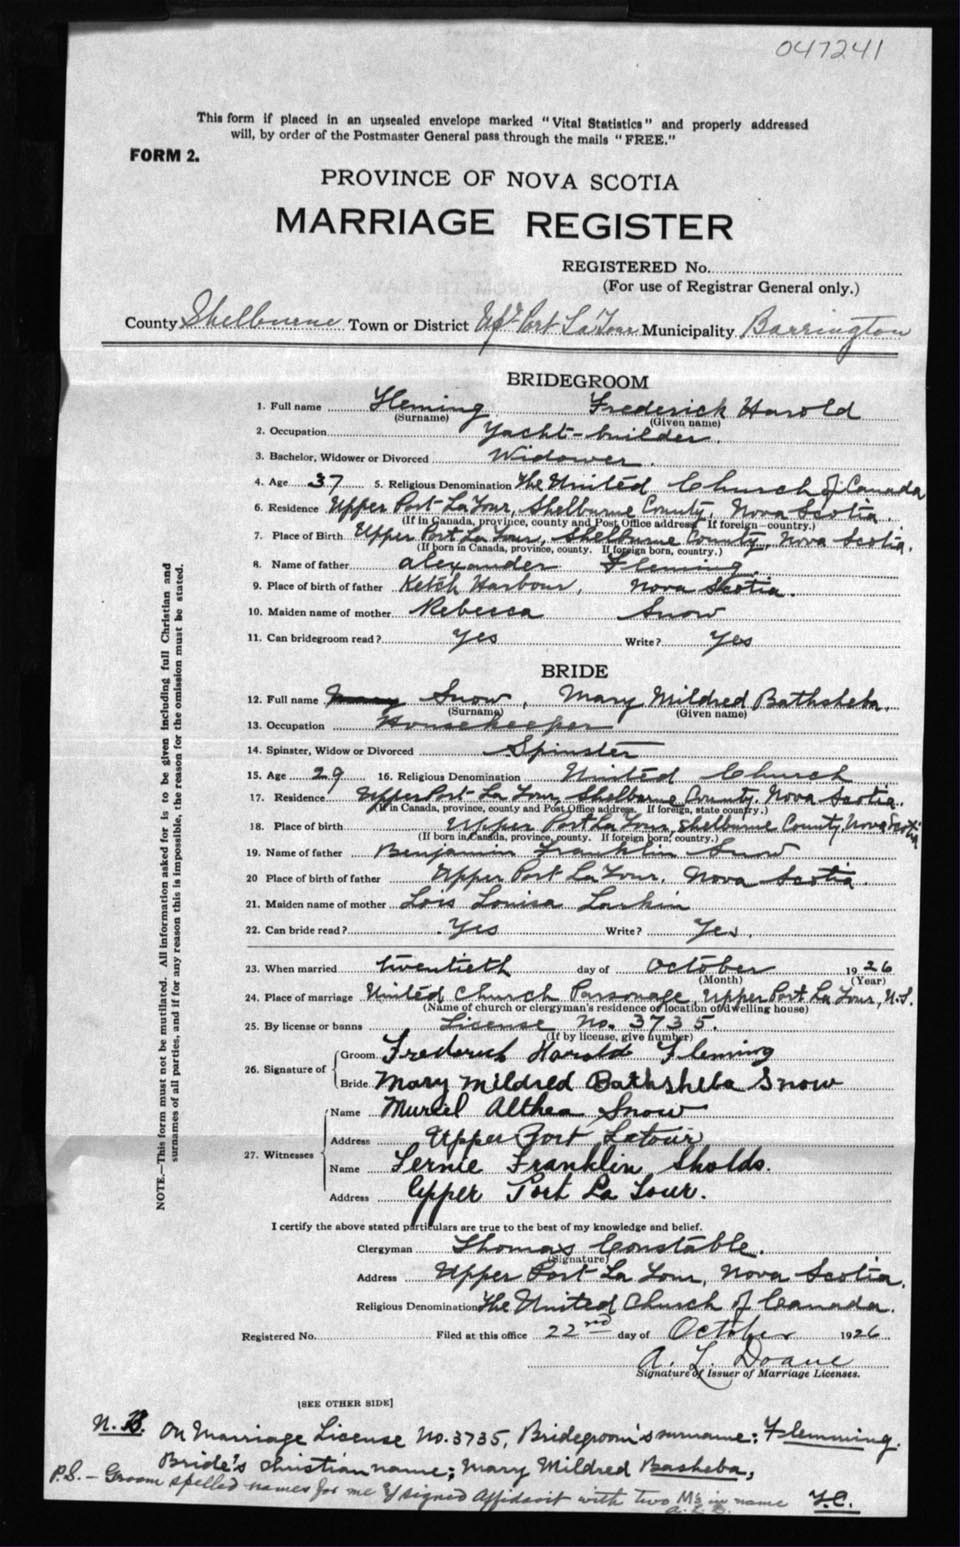 047241
This form if placed in an unsealed envelope marked "Vital Statistics" and properly addressed
will, by order of the Postmaster General pass through the mails "FREE."
FORM 2.
PROVINCE OF NOVA SCOTIA
MARRIAGE REGISTER
REGISTERED No.
(For use of Registrar General only.)
County Shelburne Town or District Upr Port La Tour Municipality Barrington
BRIDEGROOM
1. Full name Fleming Frederick Harold
(Surname) (Given name)
2. Occupation Yacht-builder.
3. Bachelor, Widower or Divorced Widower.
4. Age 37 5. Religious Denomination The United Church of Canada
6. Residence Upper Port La Tour, Shelburne County, Nova Scotia.
(If in Canada, province, county and Post Office address. If foreign—country.)
7. Place of Birth Upper Port La Tour, Shelburne County, Nova Scotia.
(If born in Canada, province, county. If foreign born, country.)
8. Name of father Alexander Fleming
9. Place of birth of father Ketch Harbour, Nova Scotia.
10. Maiden name of mother Rebecca Snow
11. Can bridegroom read? Yes Write? Yes
BRIDE
12. Full name Mary Snow, Mary Mildred Bathsheba.
(Surname) (Given name)
13. Occupation Housekeeper
14. Spinster, Widow or Divorced Spinster
15. Age 29 16. Religious Denomination United Church
17. Residence Upper Port La Tour, Shelburne County, Nova Scotia.
(If in Canada, province, county and Post Office address. If foreign, state country.)
18. Place of birth Upper Port La Tour, Shelburne County, Nova Scotia
(If born in Canada, province, county. If foreign born, country.)
19. Name of father Benjamin Franklin Snow
20 Place of birth of father Upper Port La Tour, Nova Scotia.
21. Maiden name of mother Lois Louisa Larkin
22. Can bride read? Yes Write? Yes.
23. When married twentieth day of October 1926
(Month) (Year)
24. Place of marriage United Church Parsonage, Upper Port La Tour, N.S.
(Name of church or clergyman's residence or location of dwelling house)
25. By license or banns License No. 3735.
(If by license, give number)
26. Signature of Groom. Frederick Harold Fleming
Bride Mary Mildred Bathsheba Snow
27. Witnesses Name Muriel Althea Snow
Address Upper Port Latour
Name Lernie Franklin Sholds.
Address Upper Port La Tour.
I certify the above stated particulars are true to the best of my knowledge and belief.
Clergyman Thomas Constable.
(Signature)
Address Upper Port La Tour, Nova Scotia.
Religious Denomination The United Church of Canada.
Registered No. Filed at this office 22nd day of October 1926
A. L. Doane
Signature of Issuer of Marriage Licenses.
[SEE OTHER SIDE]
N.B. On Marriage License No. 3735, Bridegroom's surname: Flemming.
Bride's Christian name; Mary Mildred Basheba,
P.S. — Groom spelled names for me & signed Affidavit with two M's in name T.C.
A. L. D.
NOTE.—This form must not be mutilated. All information asked for is to be given including full Christian and
surnames of all parties, and if for any reason this is impossible, the reason for the omission must be stated.